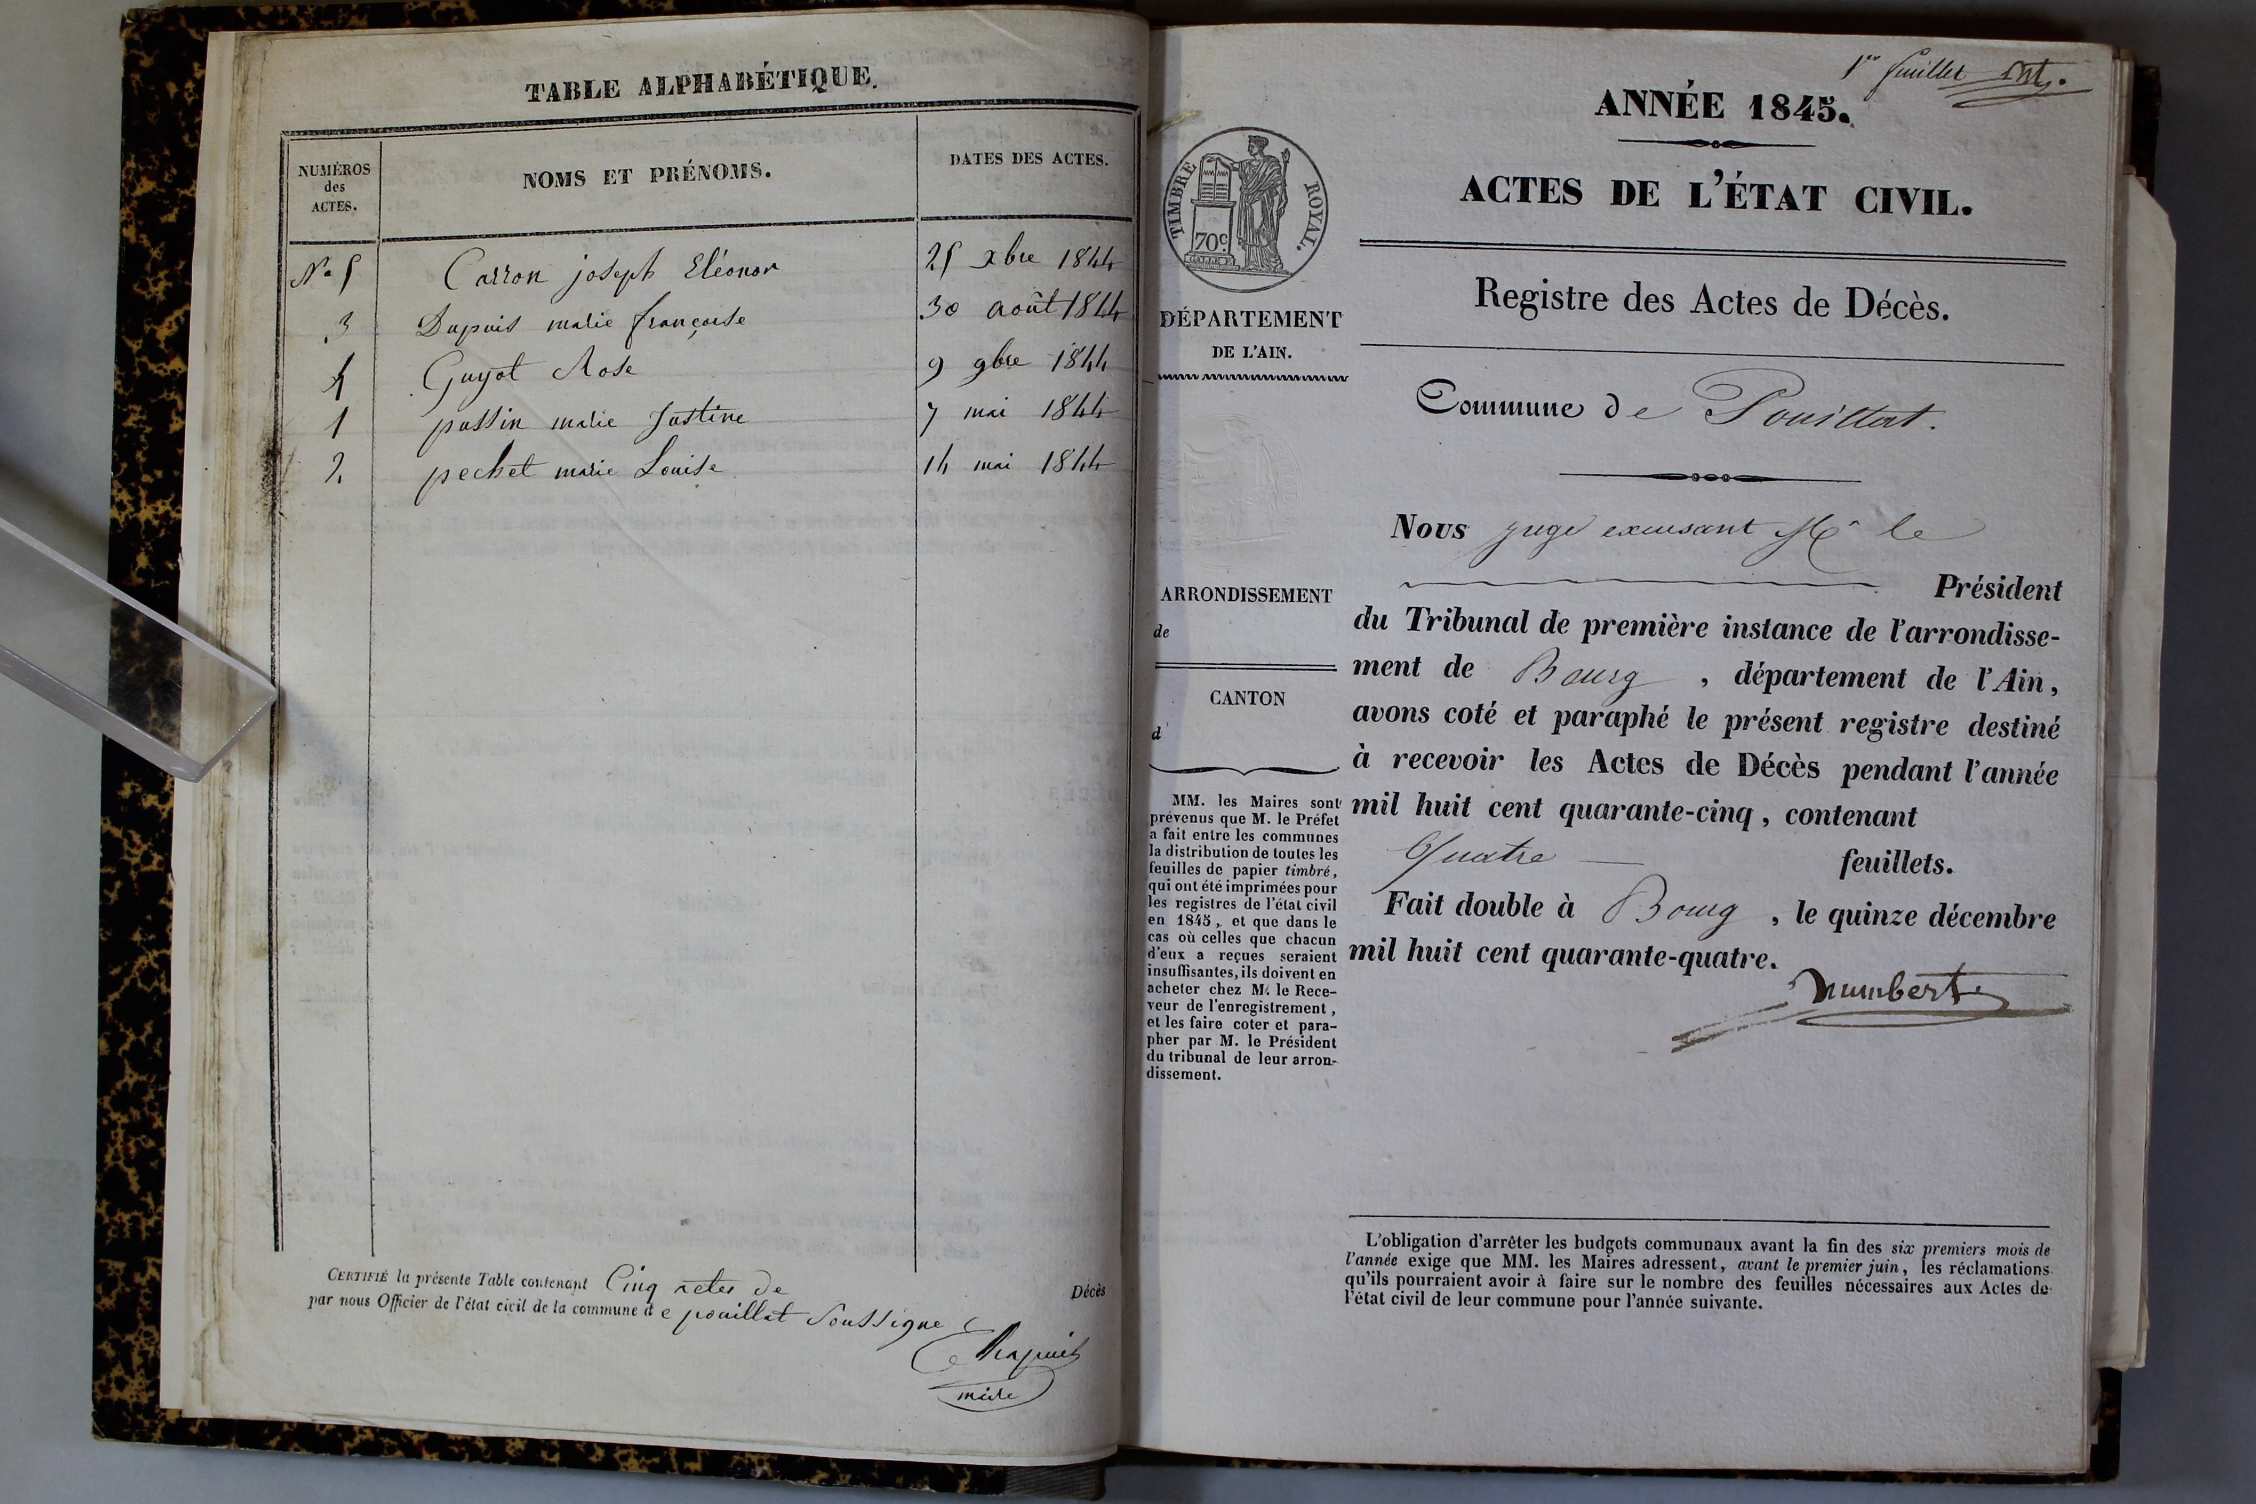 TABLE ALPHABÉTIQUE.
NUMÉROS
des
ACTES.
NOMS ET PRÉNOMS.
DATES DES ACTES.
No 5 Carron joseph Eléonor 25 xbre 1844
3 Dupuis marie françoise 30 août 1844
4 Guyot Rose 9 9bre 1844
1 passin marie Justine 7 mai 1844
2 pechet marie Louise 14 mai 1844
CERTIFIÉ la présente Table contenant Cinq actes de Décès
par nous Officier de l'état civil de la commune de pouillat Soussigné
maire
1er feuillet
ANNÉE 1845.
ACTES DE L'ÉTAT CIVIL.
TIMBRE ROYAL.
70c.
Registre des Actes de Décès.
DÉPARTEMENT
DE L'AIN.
Commune de Pouillat.
Nous juge excusant Mr le
Président
ARRONDISSEMENT
de
CANTON
d
du Tribunal de première instance de l'arrondisse-
ment de Bourg, département de l'Ain,
avons coté et paraphé le présent registre destiné
à recevoir les Actes de Décès pendant l'année
mil huit cent quarante-cinq, contenant
Quatre feuillets.
Fait double à Bourg, le quinze décembre
mil huit cent quarante-quatre.
MM. les Maires sont
prévenus que M. le Préfet
a fait entre les communes
la distribution de toutes les
feuilles de papier timbré,
qui ont été imprimées pour
les registres de l'état civil
en 1845, et que dans le
cas où celles que chacun
d'eux a reçues seraient
insuffisantes, ils doivent en
acheter chez M. le Rece-
veur de l'enregistrement,
et les faire coter et para-
pher par M. le Président
du tribunal de leur arron-
dissement.
L'obligation d'arrêter les budgets communaux avant la fin des six premiers mois de
l'année exige que MM. les Maires adressent, avant le premier juin, les réclamations
qu'ils pourraient avoir à faire sur le nombre des feuilles nécessaires aux Actes de
l'état civil de leur commune pour l'année suivante.